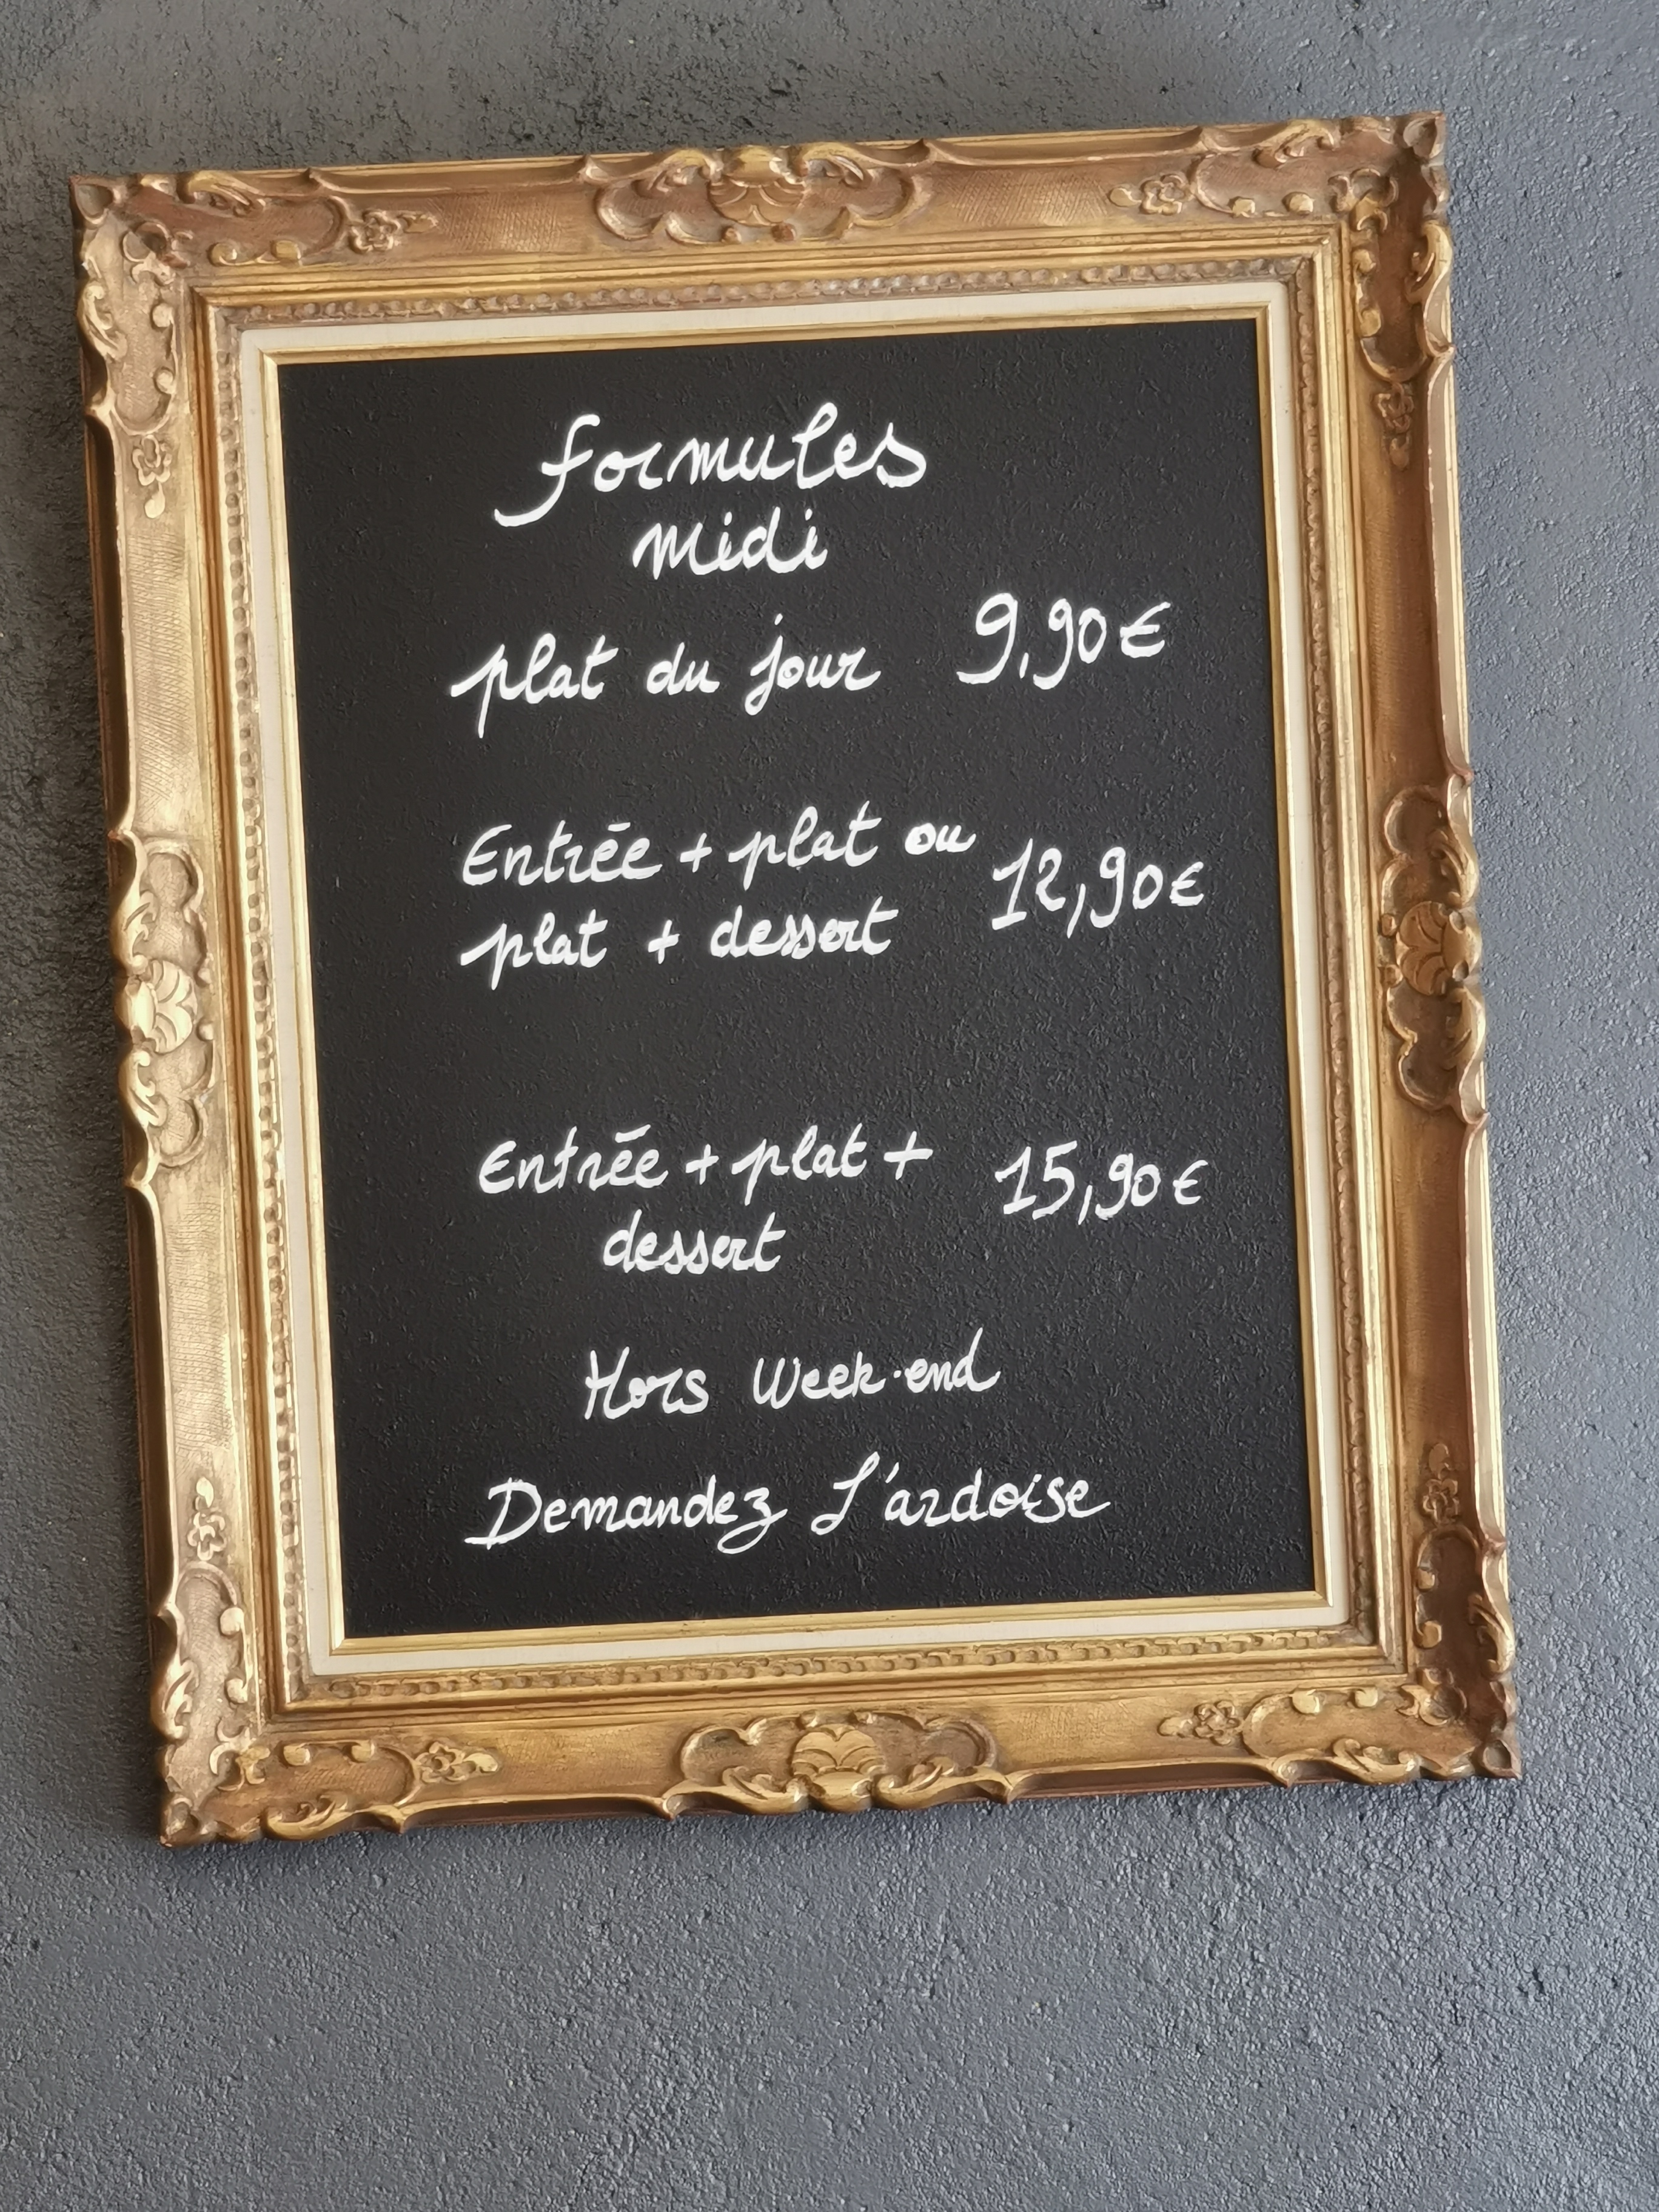 formules
midi
plat du jour 9,90€
Entrée + plat ou
plat + dessert 12,90€
Entrée + plat + 15,90€
dessert
Hors Week-end
Demandez L'ardoise